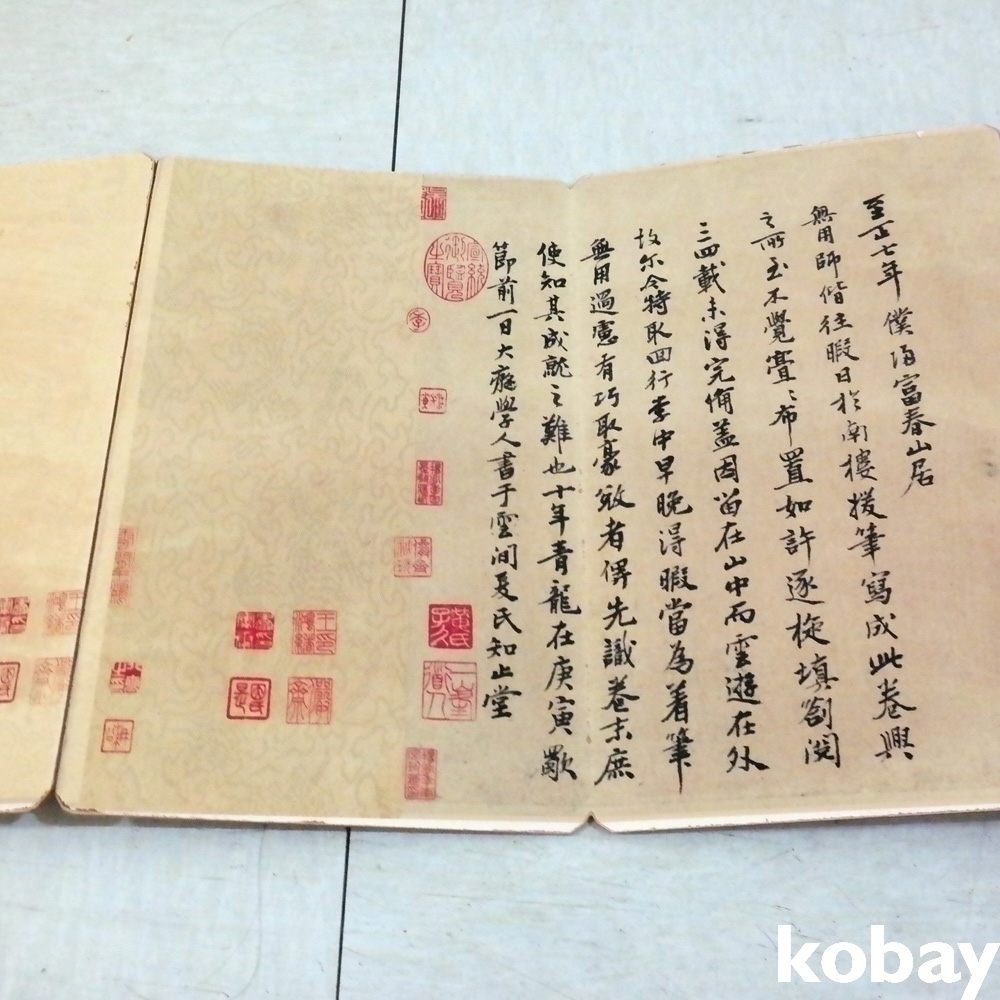 至正七年僕歸富春山居
無用師偕往暇日於南樓援筆寫成此卷興
之所至不覺亹々布置如許逐旋填劄閱
三四載未得完備蓋因留在山中而雲遊在外
故尔今特取回行李中早晚得暇當為着筆
無用過慮有巧取豪敚者俾先識卷末庶
使知其成就之難也十年青龍在庚寅歜
節前一日大癡學人書于雲間夏氏知止堂
宣統御覽之寶
kobay